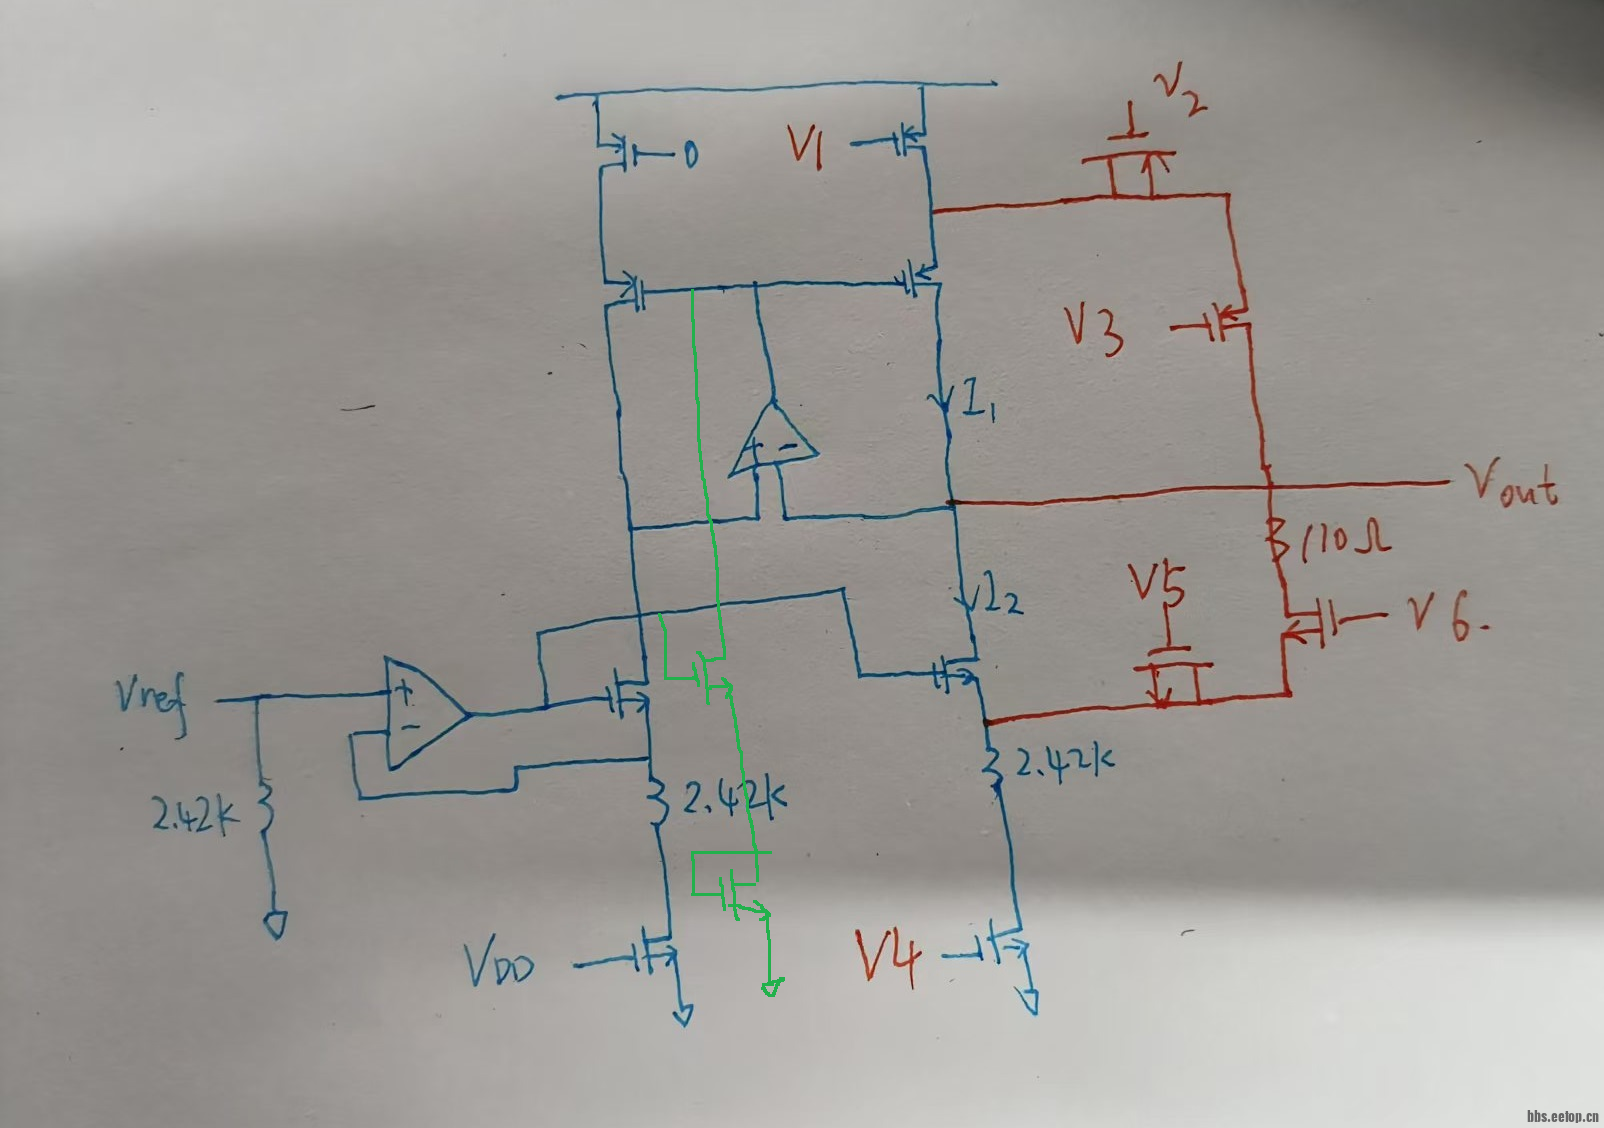 V2
0
V1
V3
I1
Vout
110Ω
V5
I2
V6.
Vref
+
-
+ -
2.42k
2.42k
2.42k
VDD
V4
bbs.eetop.cn